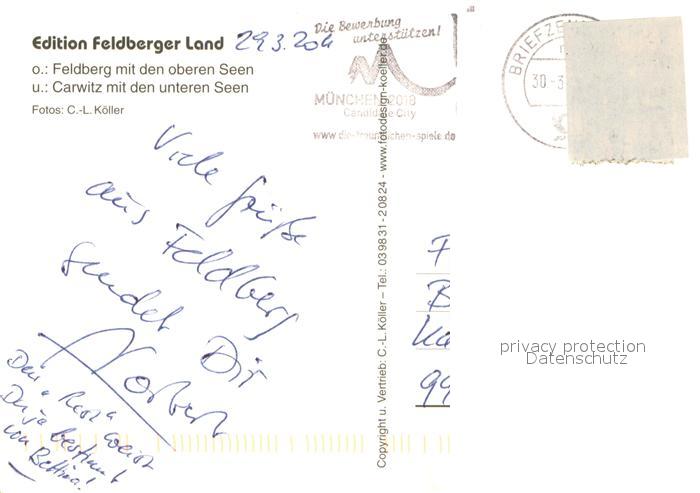 Edition Feldberger Land 29.3.2011
o.: Feldberg mit den oberen Seen
u.: Carwitz mit den unteren Seen
Fotos: C.-L. Köller
Viele Grüße
aus Feldberg
sendet Dir
Norbert
Den "Rest" weißt
Du ja bestimmt
von Bettina!
Die Bewerbung
unterstützen!
MÜNCHEN 2018
Candidate City
www.die-freundlichen-spiele.de
Copyright u. Vertrieb: C.-L. Köller – Tel.: 039831 - 20824 - www.fotodesign-koeller.de
BRIEFZEN
30.-3
F
B
99
privacy protection
Datenschutz